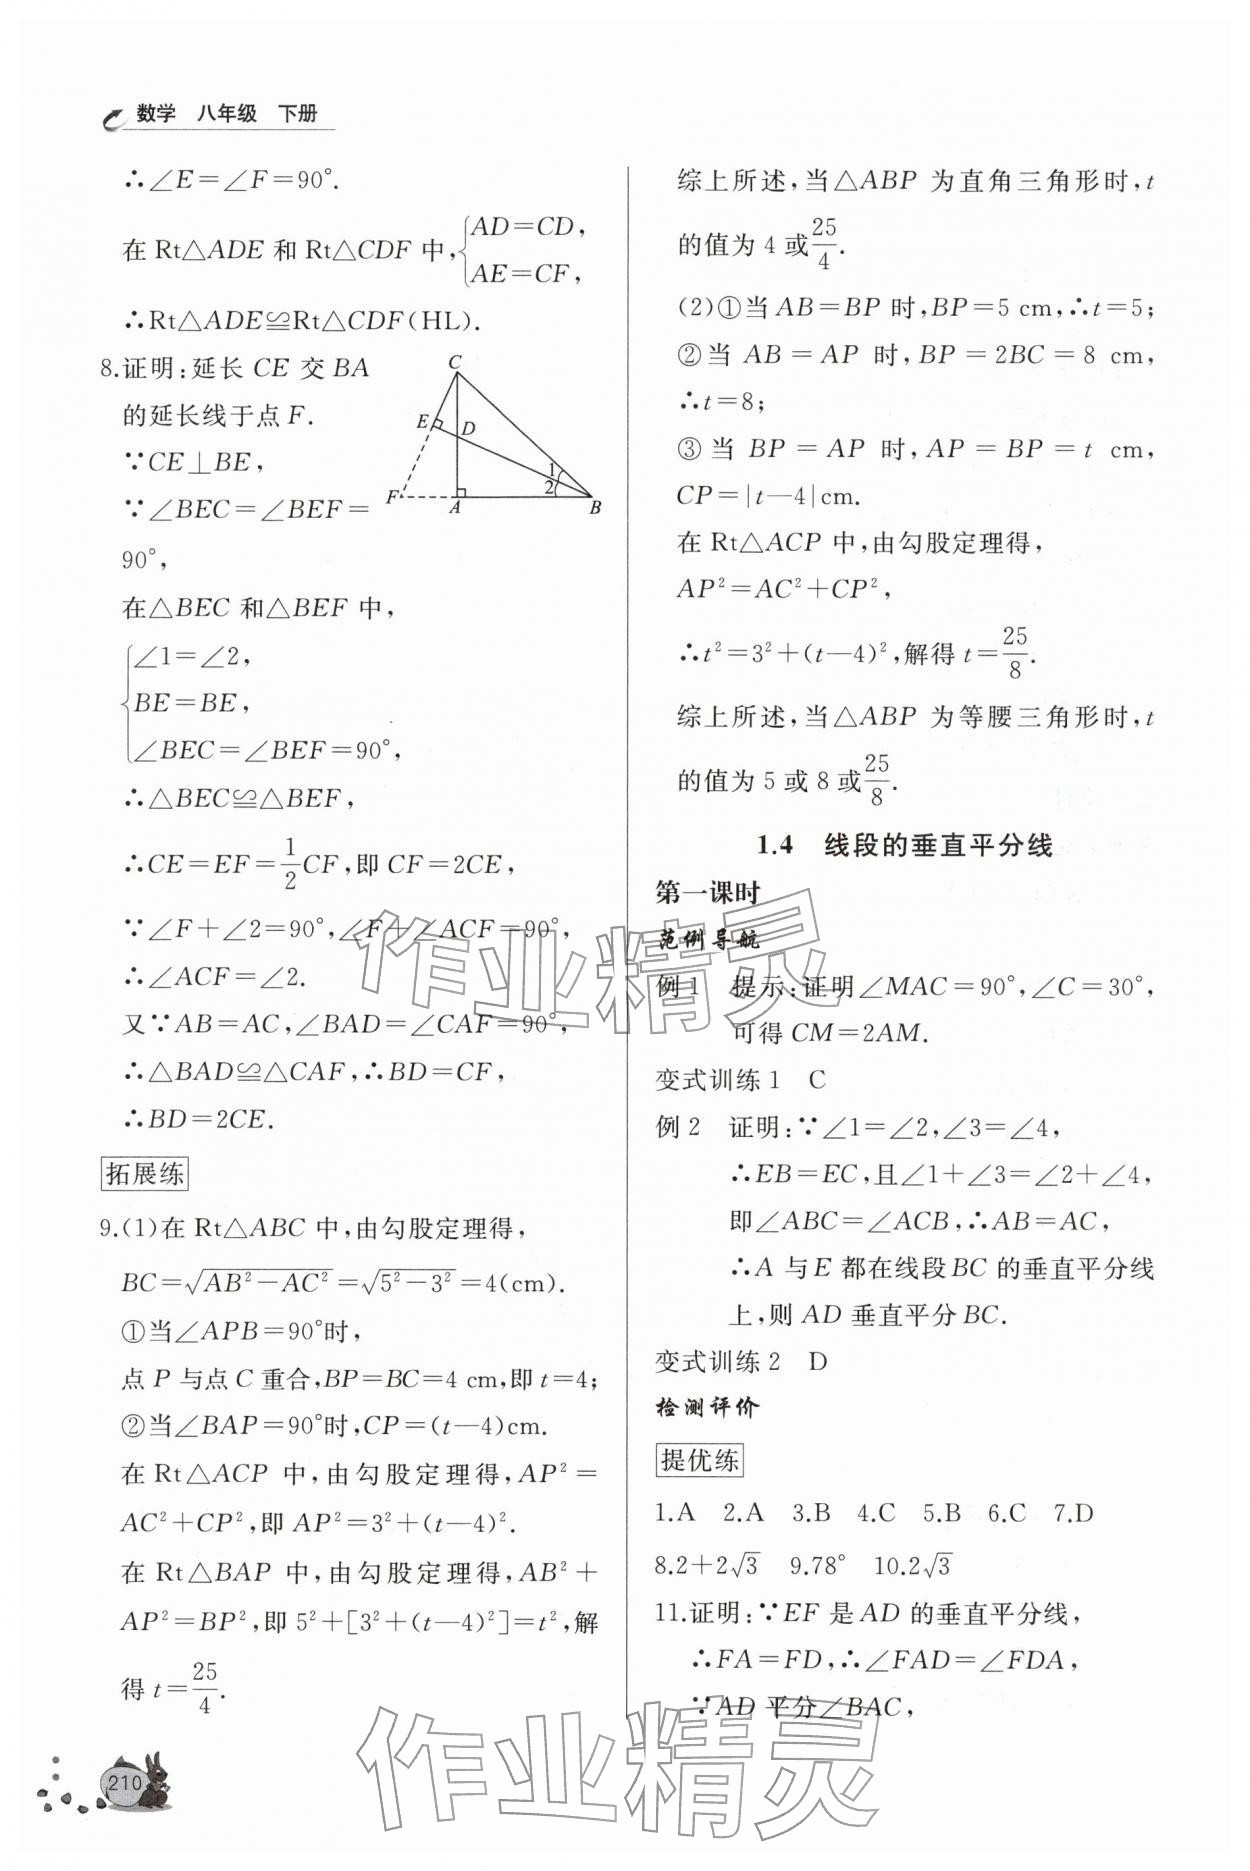 数学 八年级 下册
∴∠E=∠F=90°.
在 Rt△ADE 和 Rt△CDF 中,{AD=CD,
AE=CF,
∴Rt△ADE≌Rt△CDF(HL).
8.证明:延长 CE 交 BA
的延长线于点 F.
∵CE⊥BE,
∵∠BEC=∠BEF=
90°,
C
E
D
F
A
B
1
2
在△BEC 和△BEF 中,
∠1=∠2,
BE=BE,
∠BEC=∠BEF=90°,
∴△BEC≌△BEF,
∴CE=EF=1/2CF,即 CF=2CE,
∵∠F+∠2=90°,∠F+∠ACF=90°,
∴∠ACF=∠2.
又∵AB=AC,∠BAD=∠CAF=90°,
∴△BAD≌△CAF,∴BD=CF,
∴BD=2CE.
拓展练
9.(1)在 Rt△ABC 中,由勾股定理得,
BC=√(AB²-AC²)=√(5²-3²)=4(cm).
①当∠APB=90°时,
点 P 与点 C 重合,BP=BC=4 cm,即 t=4;
②当∠BAP=90°时,CP=(t-4)cm.
在 Rt△ACP 中,由勾股定理得,AP²=
AC²+CP²,即 AP²=3²+(t-4)².
在 Rt△BAP 中,由勾股定理得,AB²+
AP²=BP²,即 5²+[3²+(t-4)²]=t²,解
得 t=25/4.
综上所述,当△ABP 为直角三角形时,t
的值为 4 或25/4.
(2)①当 AB=BP 时,BP=5 cm,∴t=5;
②当 AB=AP 时,BP=2BC=8 cm,
∴t=8;
③当 BP=AP 时,AP=BP=t cm,
CP=|t-4|cm.
在 Rt△ACP 中,由勾股定理得,
AP²=AC²+CP²,
∴t²=3²+(t-4)²,解得 t=25/8.
综上所述,当△ABP 为等腰三角形时,t
的值为 5 或 8 或25/8.
1.4 线段的垂直平分线
第一课时
范例导航
例 1 提示:证明∠MAC=90°,∠C=30°,
可得 CM=2AM.
变式训练 1 C
例 2 证明:∵∠1=∠2,∠3=∠4,
∴EB=EC,且∠1+∠3=∠2+∠4,
即∠ABC=∠ACB,∴AB=AC,
∴A 与 E 都在线段 BC 的垂直平分线
上,则 AD 垂直平分 BC.
变式训练 2 D
检测评价
提优练
1.A 2.A 3.B 4.C 5.B 6.C 7.D
8.2+2√3 9.78° 10.2√3
11.证明:∵EF 是 AD 的垂直平分线,
∴FA=FD,∴∠FAD=∠FDA,
∵AD 平分∠BAC,
210
作业精灵
作业精灵